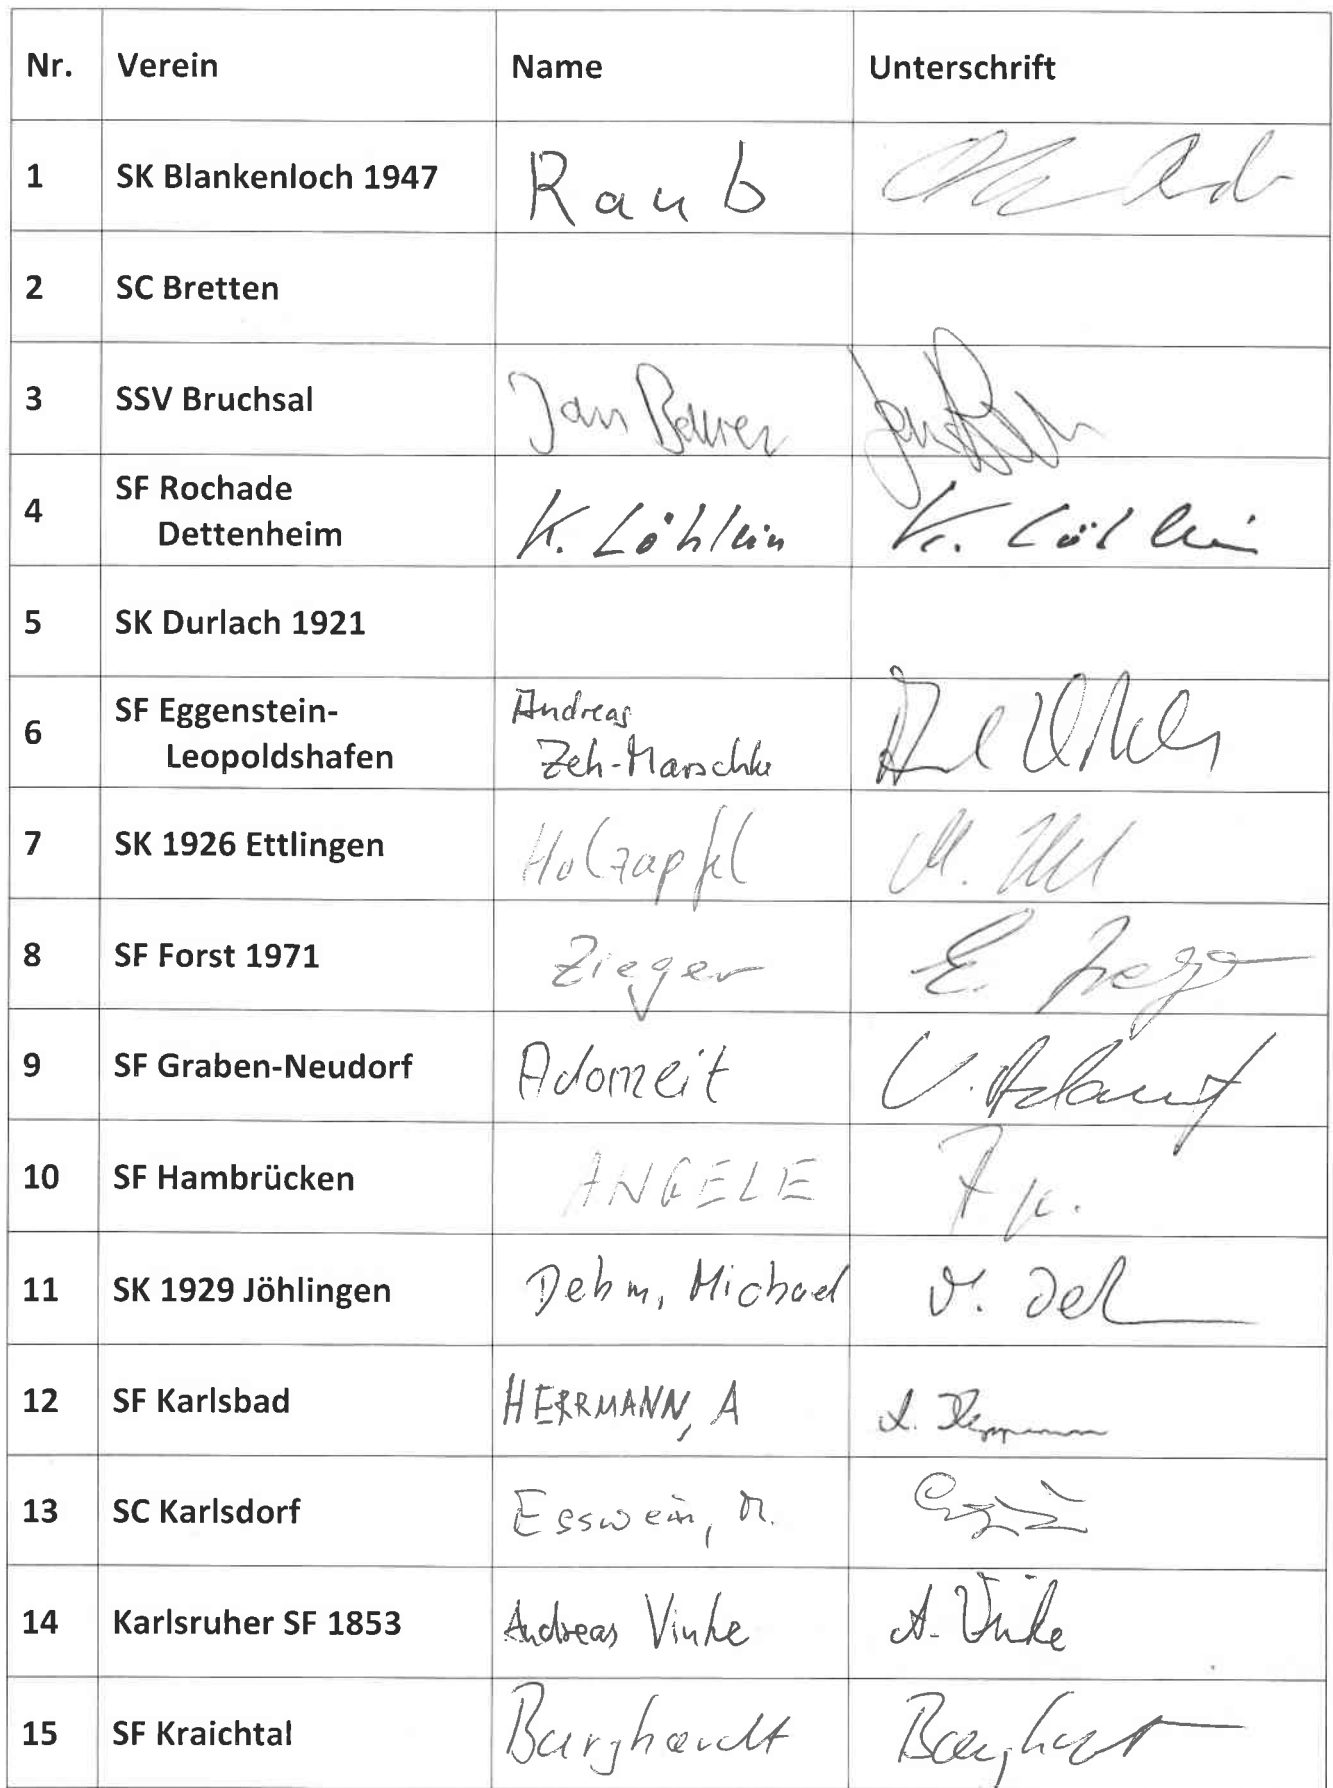 Nr. Verein Name Unterschrift
1 SK Blankenloch 1947 Raub
2 SC Bretten
3 SSV Bruchsal Jan Bauer
4 SF Rochade
Dettenheim K. Löhlein K. Löhlein
5 SK Durlach 1921
6 SF Eggenstein-
Leopoldshafen Andreas
Zeh-Marschke
7 SK 1926 Ettlingen Holzapfel
8 SF Forst 1971 Zieger E. Zieger
9 SF Graben-Neudorf Adomeit V. Adomeit
10 SF Hambrücken ANGELE
11 SK 1929 Jöhlingen Dehm, Michael
12 SF Karlsbad HERRMANN, A A. Herrmann
13 SC Karlsdorf Esswein, M.
14 Karlsruher SF 1853 Andreas Vinke A. Vinke
15 SF Kraichtal Burghardt Burghardt